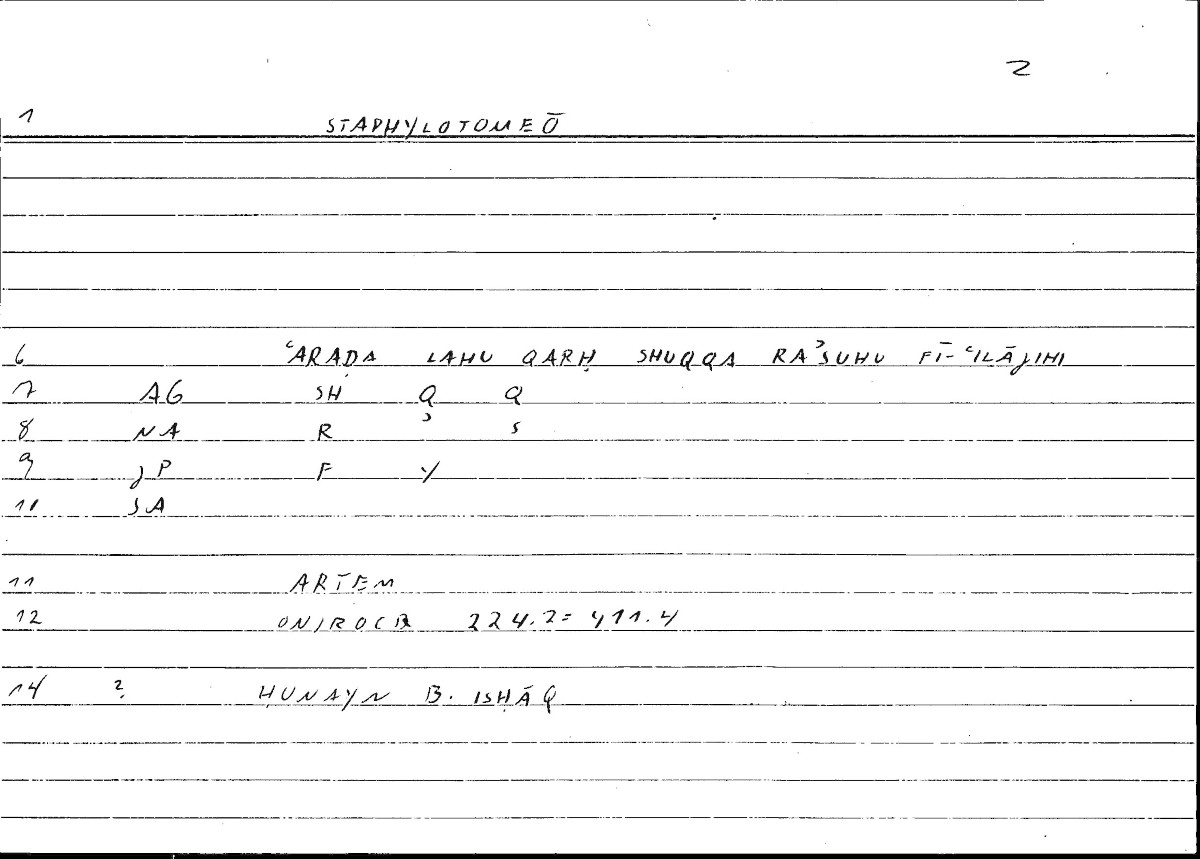 2
1 STAPHYLOTOMEŌ
6 ʿARAḌA LAHU QARḤ SHUQQA RAʾSUHU FĪ-ʿILĀJIHI
7 AG SH Q Q
8 NA R ʾ S
9 JP F Y
10 SA
11 ARTEM
12 ONIROCR 224.2= 411.4
14 2. ḤUNAYN B. ISḤĀQ